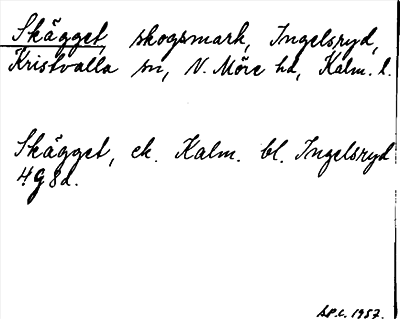 Skägget, skogsmark, Ingelsryd,
Kristvalla sn, N. Möre hd, Kalm. l.
Skägget, ek. Kalm. bl. Ingelsryd
4 G 8 d.
1957.